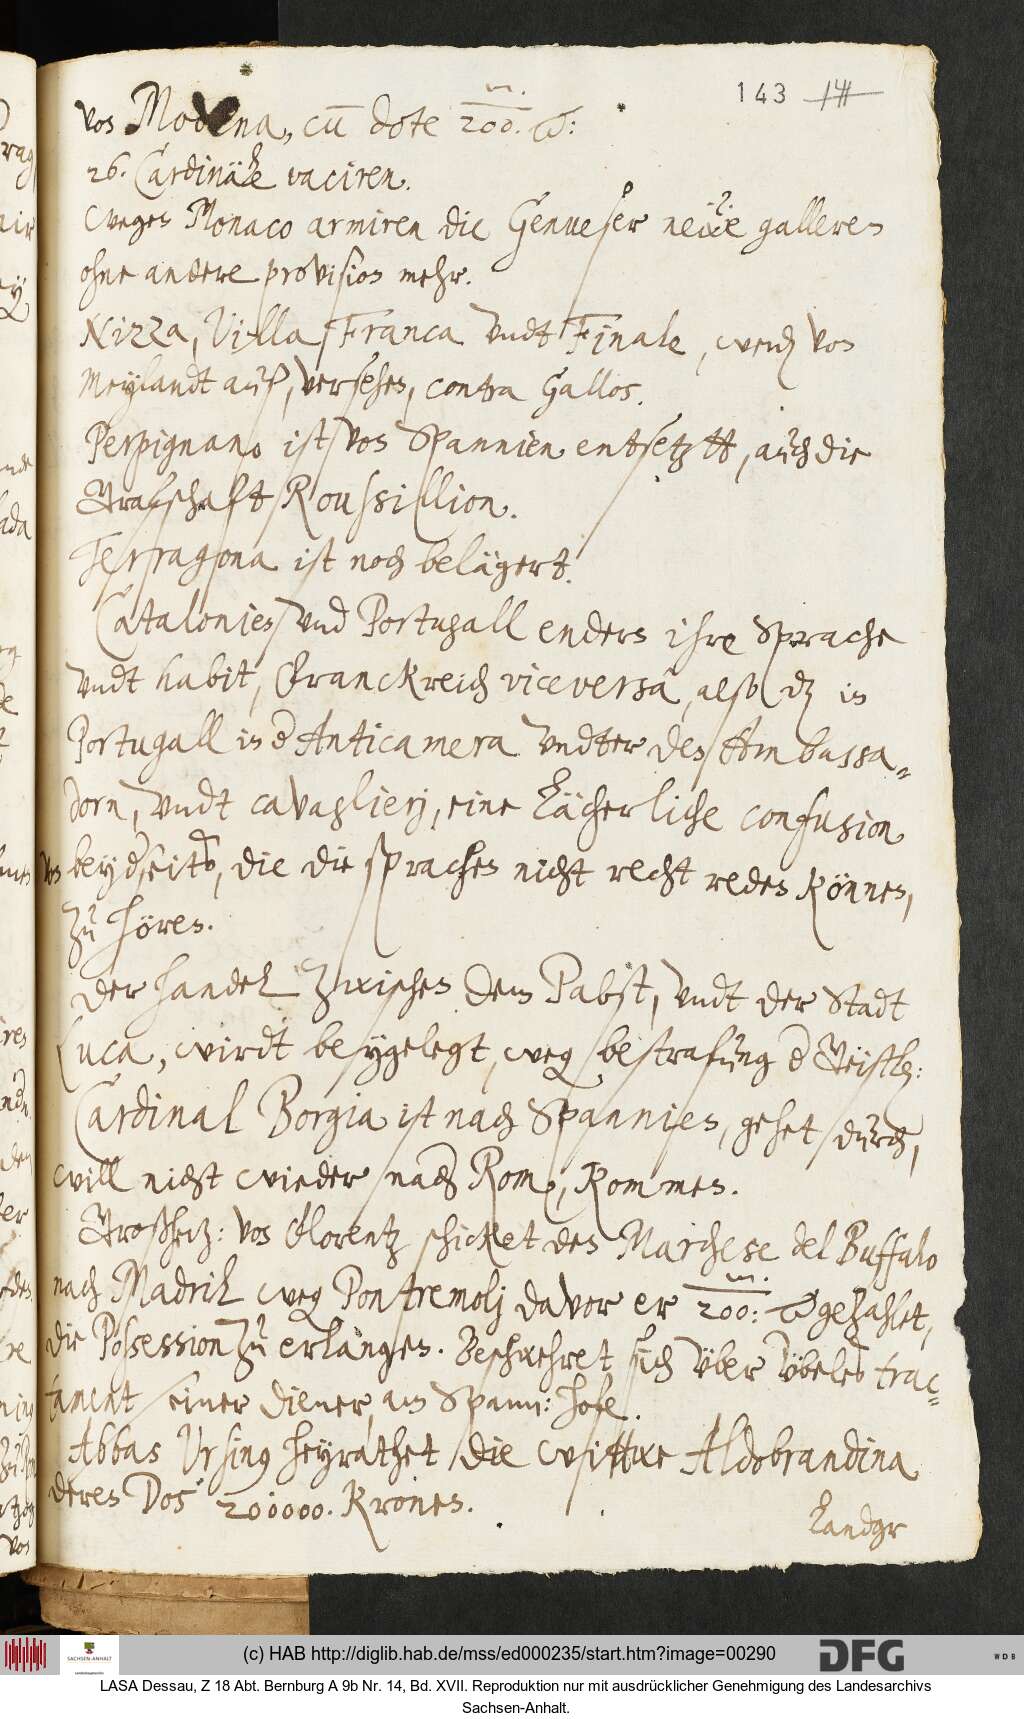 143 141
von Modena, cũ dote 200. m. 
26. Cardinäle vaciren.
Wegen Monaco armiren die Genueser neüe galleren
ohne andere provision mehr.
Nizza, Villa Franca vndt Finale, werden von
Meylandt auß, versehen, contra Gallos.
Perpignano ist von Spannien entsetztt, auch die
Grafschaft Roussillion.
Terragona ist noch belägert.
Catalonien vnd Portugall endern ihre Sprache
vndt habit, Franckreich viceversa, also dz in
Portugall in der Anticamera vndter den Ambassa-
dorn, vndt cavaglierj, eine Lächerliche confusion
von beyderseits, die die sprachen nicht recht reden können,
zu hören.
Der handel zwischen dem Pabst, vndt der Stadt
Luca, wirdt beygelegt, weg bestrafung der Geistl:
Cardinal Borgia ist nach Spannien, gehet durch,
will nicht wieder nach Rom, kommen.
Großhz: von Florentz schicket den Marchese del Buffalo
nach Madril weg Pontremolj davor er 200: m. gezahlet,
die Possession zu erlangen. Beschwehret sich über übeles trac-
tament seiner diener, am Spann: hofe.
Abbas Ursinus heyrathet die wittwe Aldobrandina
deren Dos 200000. Kronen.
Landgr
(c) HAB http://diglib.hab.de/mss/ed000235/start.htm?image=00290
SACHSEN-ANHALT
DFG
WDB
LASA Dessau, Z 18 Abt. Bernburg A 9b Nr. 14, Bd. XVII. Reproduktion nur mit ausdrücklicher Genehmigung des Landesarchivs
Sachsen-Anhalt.